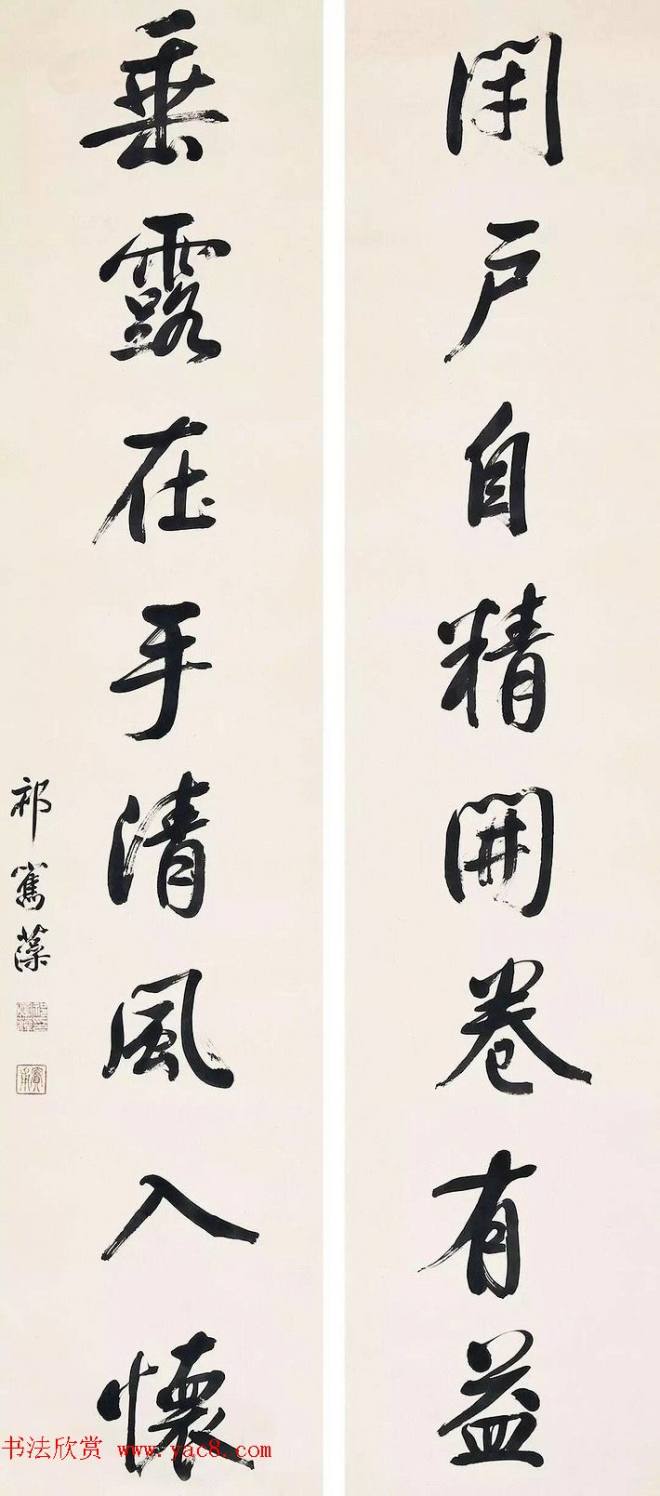 閉戶自精開卷有益
垂露在手清風入懷
祁寯藻
书法欣赏 www.yac8.com